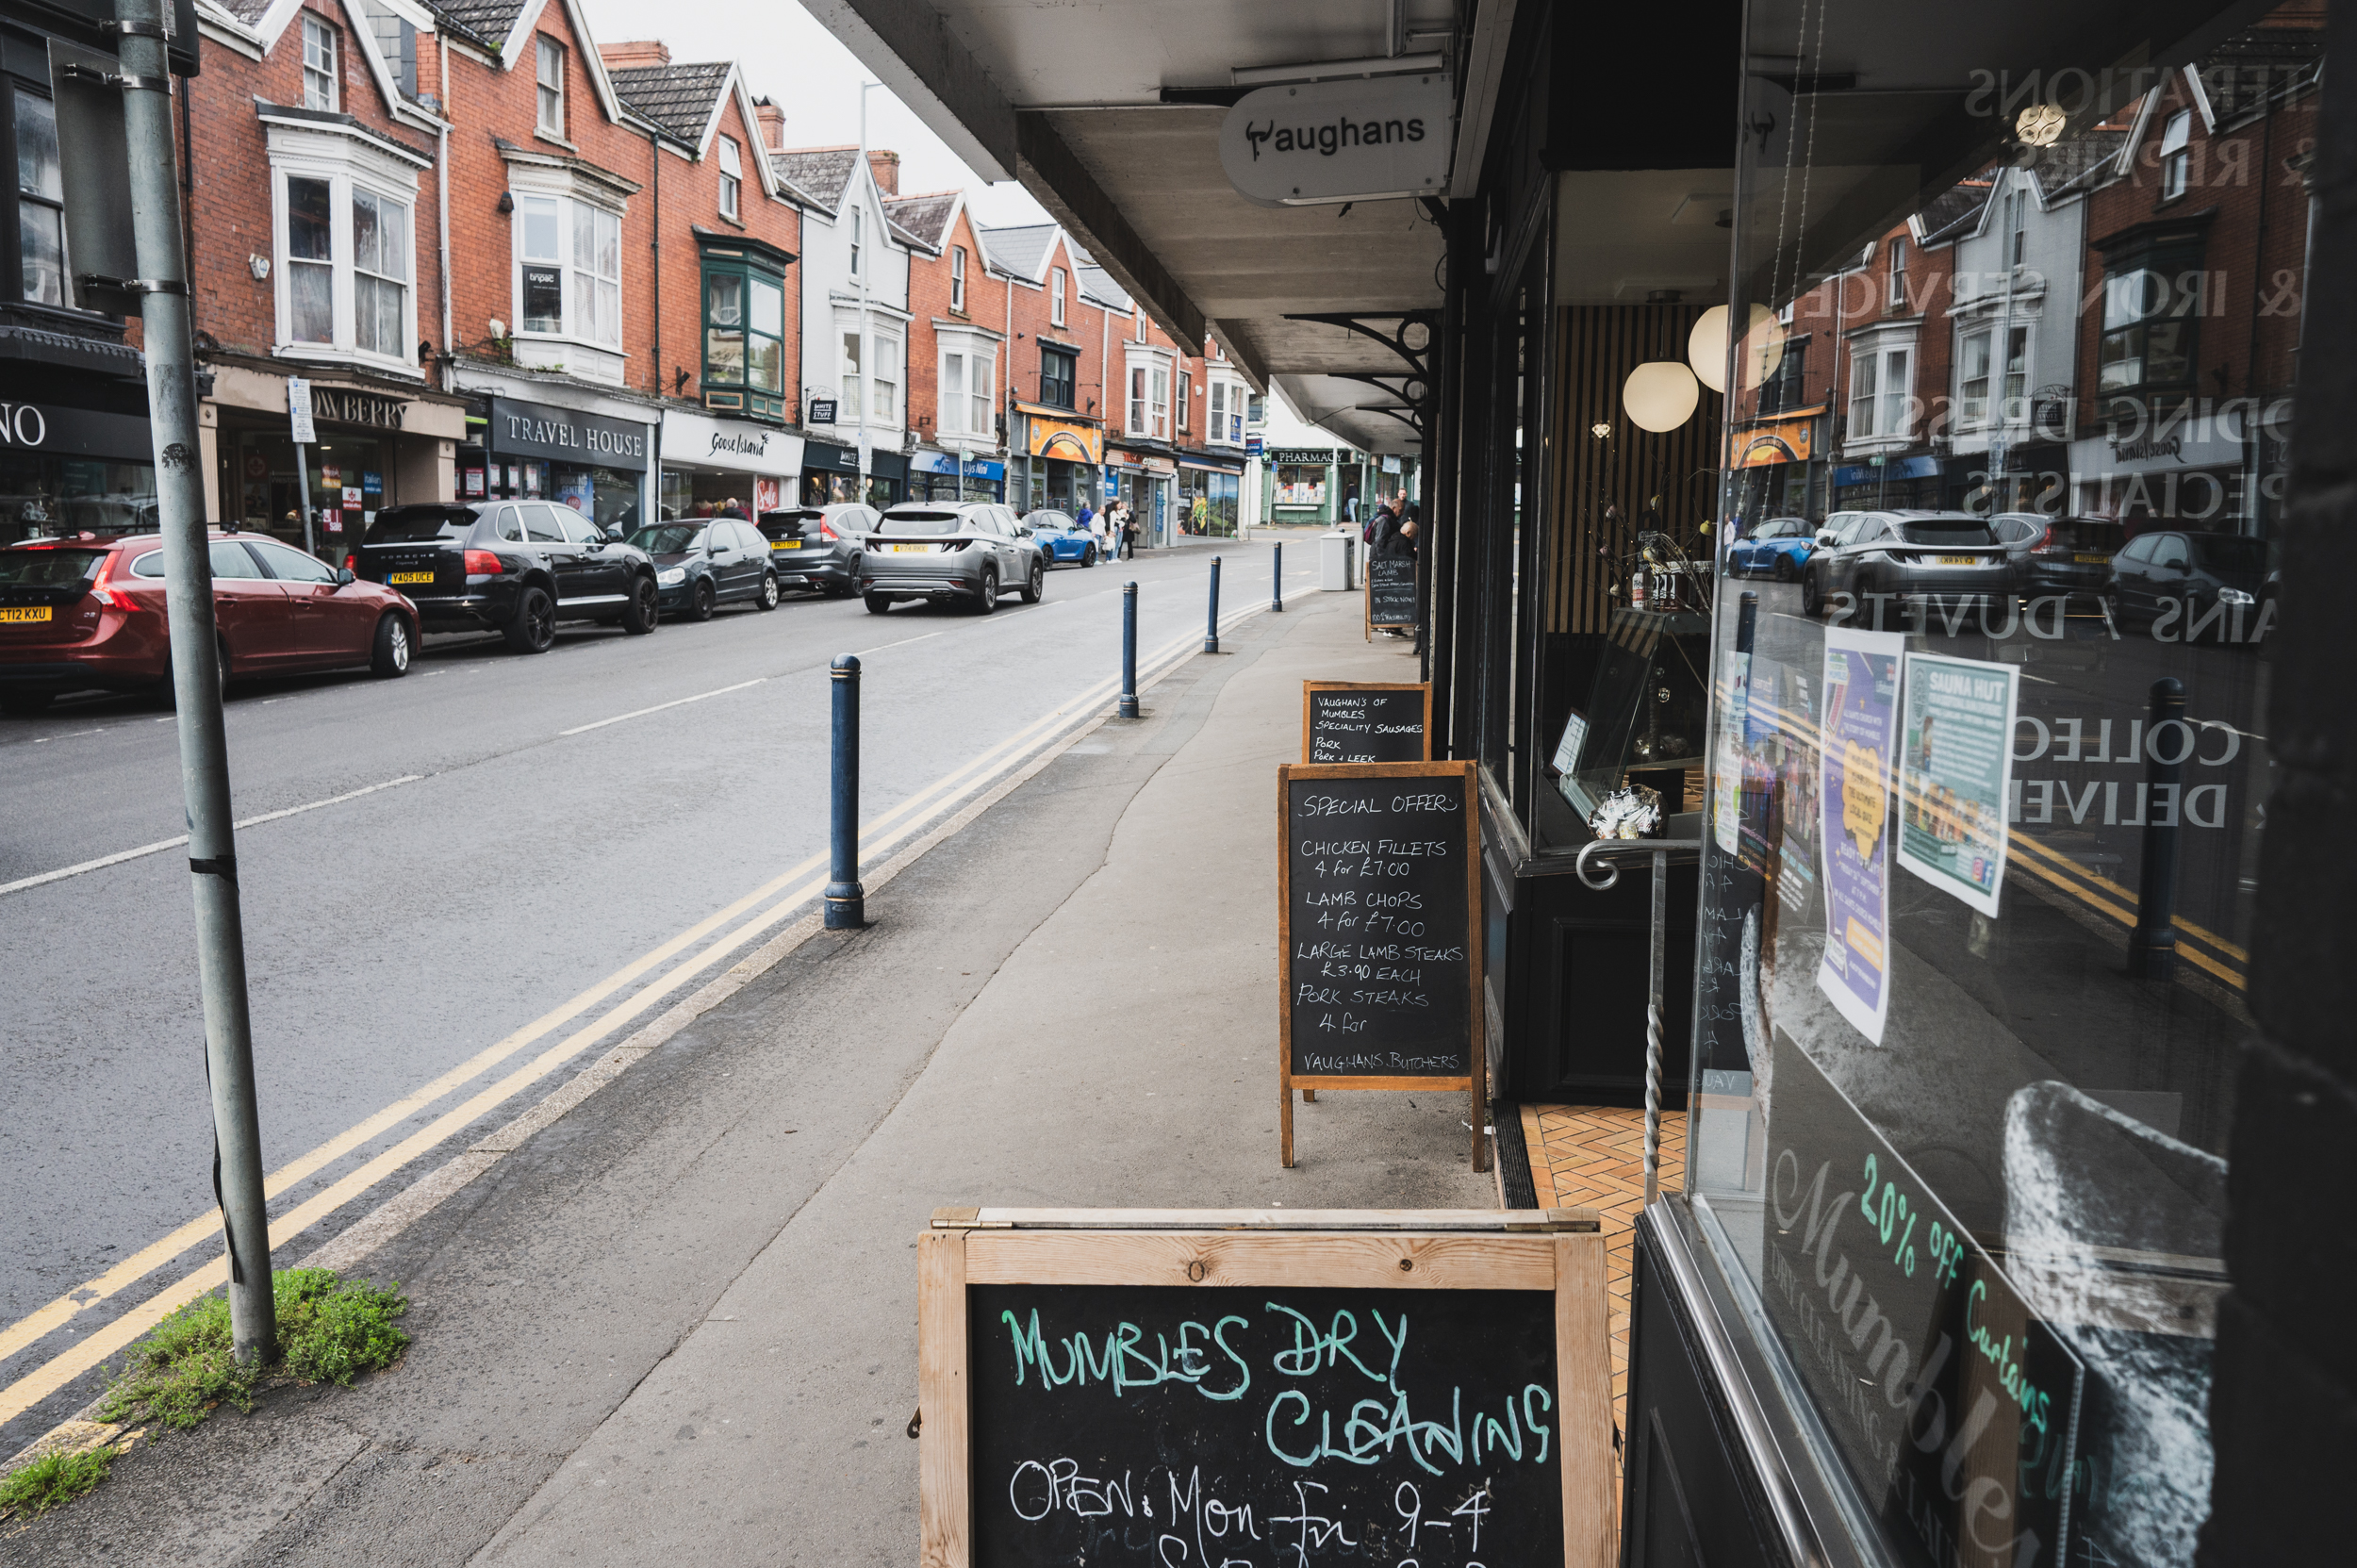 NO
OWBERRY
TRAVEL HOUSE
tinpac
Goose Island
Sale
WHITE
STUFF
WHITE
Llys Nini
PHARMACY
CT12 KXU
PORSCHE
YA05 UCE
Vaughans
SALT MARSH
LAMB
IN STOCK NOW!
VAUGHAN'S OF
MUMBLES
SPECIALITY SAUSAGES
PORK
PORK & LEEK
SPECIAL OFFERS
CHICKEN FILLETS
4 for £7.00
LAMB CHOPS
4 for £7.00
LARGE LAMB STEAKS
£3.90 EACH
PORK STEAKS
4 for
VAUGHANS BUTCHERS
MUMBLES DRY
CLEANING
OPEN: Mon-Fri 9-4
LTERATIONS
& REPAIRS
& IRON SERVICE
DDING DRESS
PECIALISTS
AINS / DUVETS
COLLEC
DELIVE
SAUNA HUT
20% off Curtains
Mumbles
DRY CLEANING &